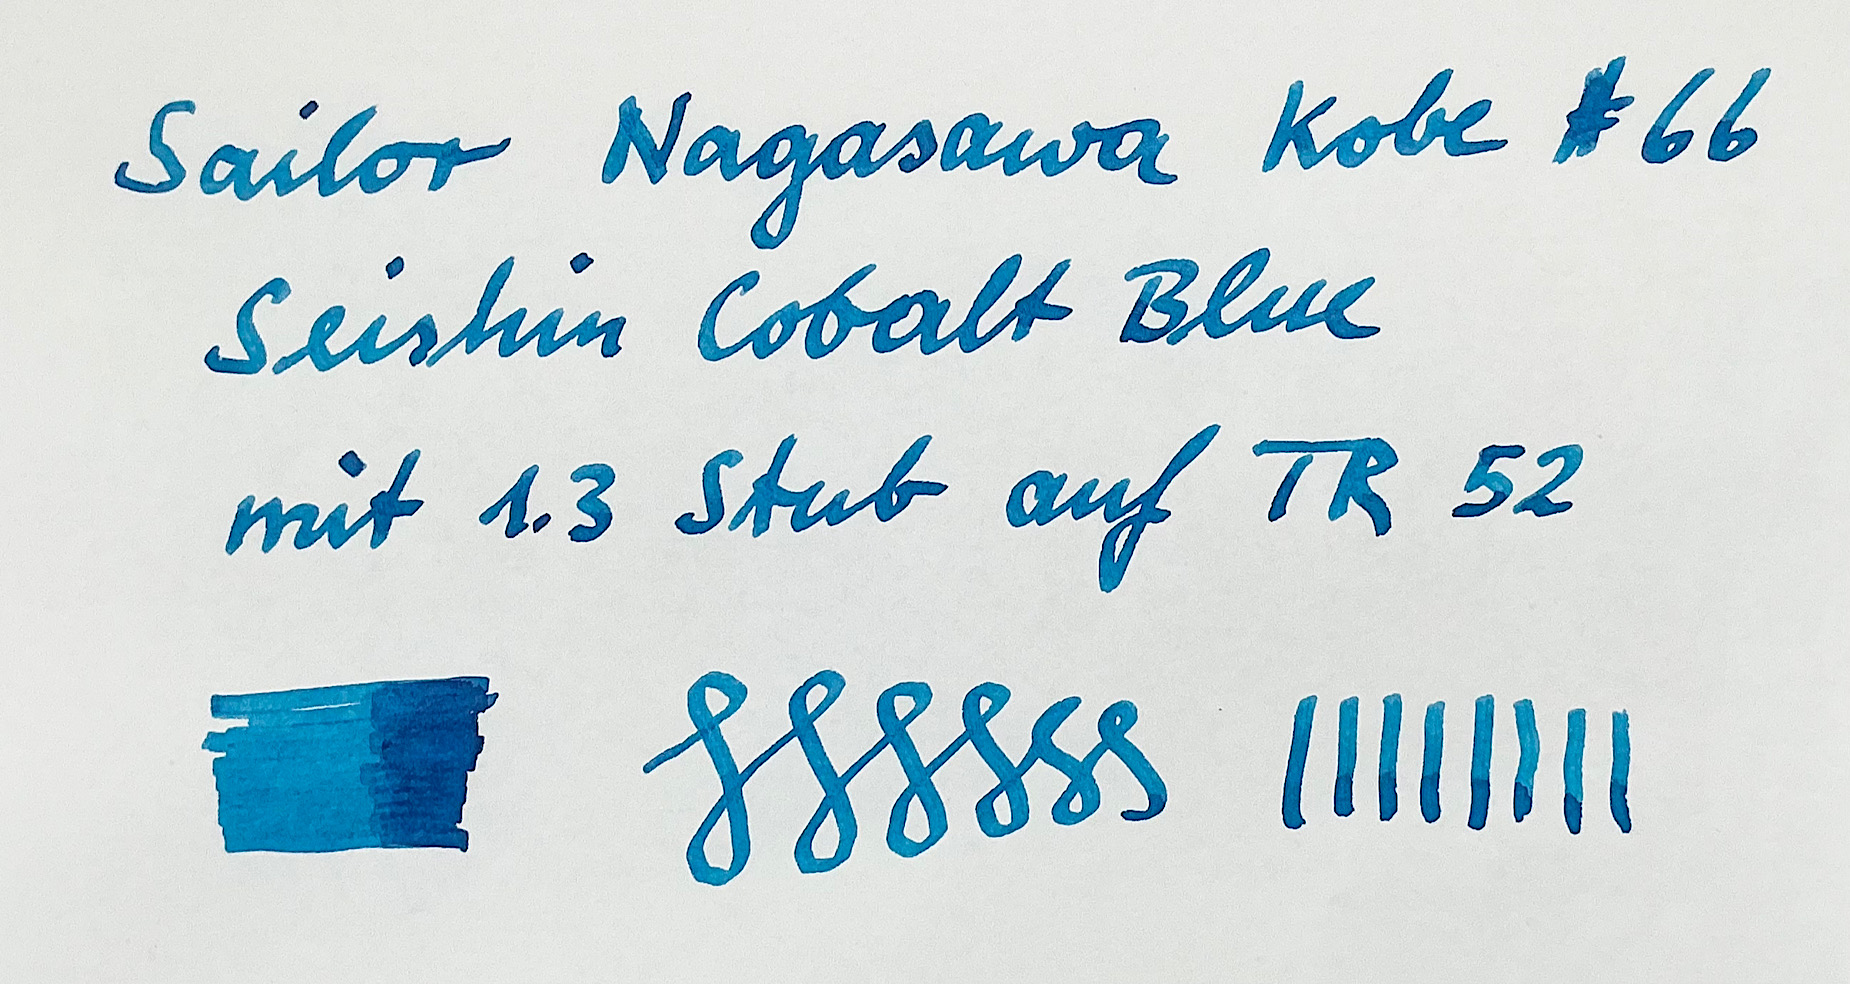 Sailor Nagasawa Kobe #66
Seishin Cobalt Blue
mit 1.3 Stub auf TR 52